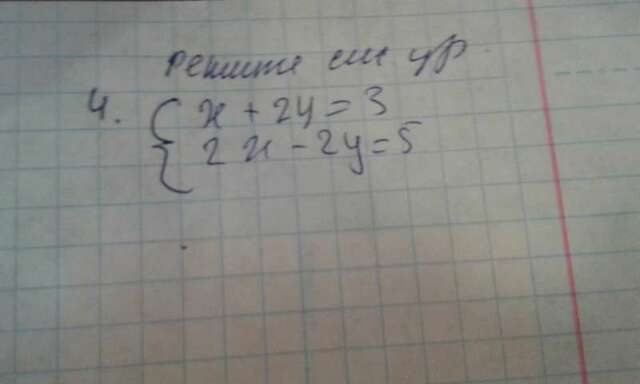 Решите сис ур.
4. { x + 2y = 3
2x - 2y = 5